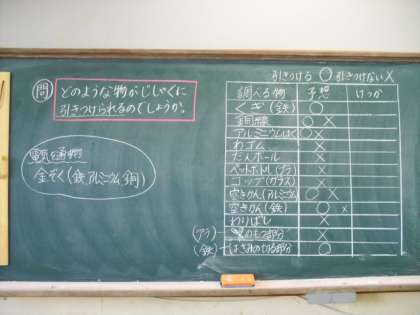 問 どのような物がじしゃくに
引きつけられるのでしょうか。
電気を通す物
金ぞく(鉄,アルミニウム,銅)
引きつける ○ 引きつけない ×
調べる物 予想 けっか
くぎ(鉄) ○
銅線 ○ ×
アルミニウムはく ○ ×
わゴム ×
だんボール ×
ペットボトル(プラ) ×
コップ(ガラス) ×
空きかん(アルミニウム) ○ ×
空きかん(鉄) ○ ×
わりばし ×
(プラ) もつ部分 ×
(鉄) はさみの切る部分 ○